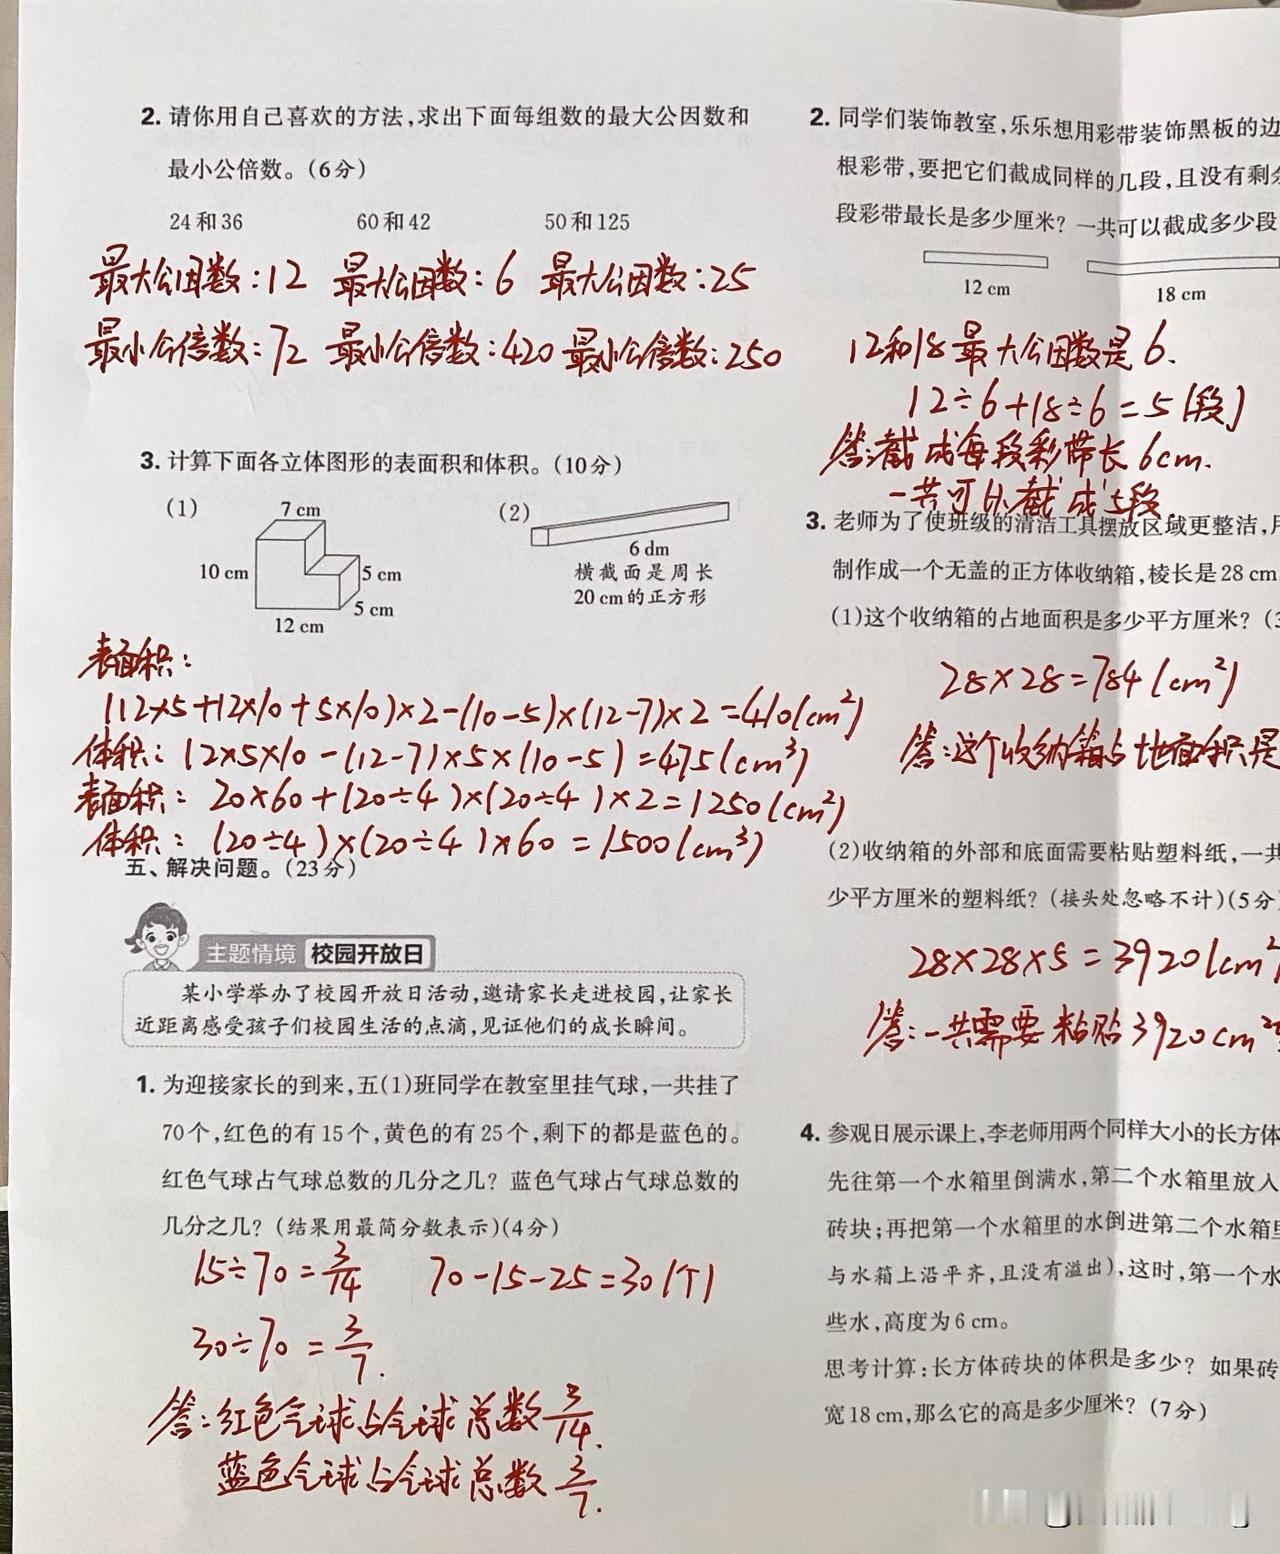 2. 请你用自己喜欢的方法,求出下面每组数的最大公因数和
最小公倍数。(6分)
24和36 60和42 50和125
最大公因数:12 最大公因数:6 最大公因数:25
最小公倍数:72 最小公倍数:420 最小公倍数:250
3. 计算下面各立体图形的表面积和体积。(10分)
(1) 7 cm
10 cm 5 cm
5 cm
12 cm
(2)
6 dm
横截面是周长
20 cm的正方形
表面积:
(12×5+12×10+5×10)×2-(10-5)×(12-7)×2=410(cm²)
体积:12×5×10-(12-7)×5×(10-5)=475(cm³)
表面积:20×60+(20÷4)×(20÷4)×2=1250(cm²)
体积:(20÷4)×(20÷4)×60=1500(cm³)
五、解决问题。(23分)
主题情境 校园开放日
某小学举办了校园开放日活动,邀请家长走进校园,让家长
近距离感受孩子们校园生活的点滴,见证他们的成长瞬间。
1. 为迎接家长的到来,五(1)班同学在教室里挂气球,一共挂了
70个,红色的有15个,黄色的有25个,剩下的都是蓝色的。
红色气球占气球总数的几分之几?蓝色气球占气球总数的
几分之几?(结果用最简分数表示)(4分)
15÷70=3/14 70-15-25=30(个)
30÷70=3/7.
答:红色气球占气球总数3/14.
蓝色气球占气球总数3/7.
2. 同学们装饰教室,乐乐想用彩带装饰黑板的边
根彩带,要把它们截成同样的几段,且没有剩余
段彩带最长是多少厘米?一共可以截成多少段
12 cm 18 cm
12和18最大公因数是6.
12÷6+18÷6=5(段)
答:截成每段彩带长6cm.
一共可以截成5段.
3. 老师为了使班级的清洁工具摆放区域更整洁,用
制作成一个无盖的正方体收纳箱,棱长是28 cm
(1)这个收纳箱的占地面积是多少平方厘米?(3
28×28=784(cm²)
答:这个收纳箱占地面积是
(2)收纳箱的外部和底面需要粘贴塑料纸,一共
少平方厘米的塑料纸?(接头处忽略不计)(5分
28×28×5=3920(cm²
答:一共需要粘贴3920cm²
4. 参观日展示课上,李老师用两个同样大小的长方体
先往第一个水箱里倒满水,第二个水箱里放入
砖块;再把第一个水箱里的水倒进第二个水箱里
与水箱上沿平齐,且没有溢出),这时,第一个水
些水,高度为6 cm。
思考计算:长方体砖块的体积是多少?如果砖
宽18 cm,那么它的高是多少厘米?(7分)